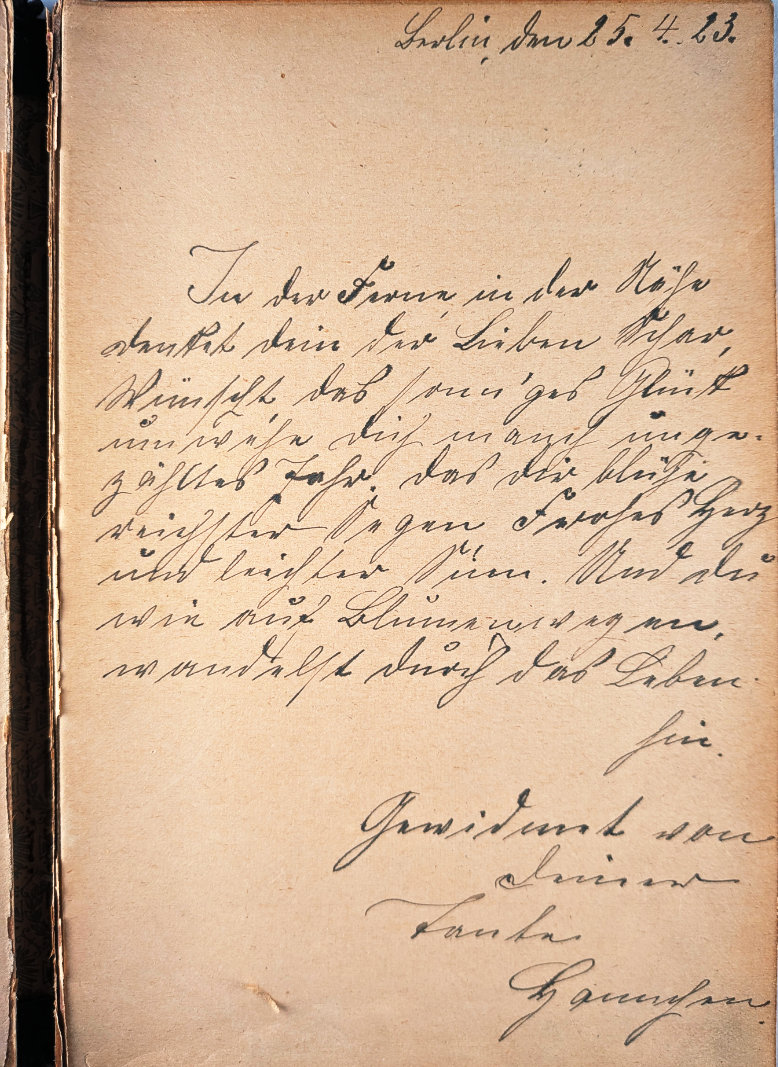 Berlin, den 25. 4. 23.
In der Ferne, in der Nähe
denket dein der Lieben Schar,
Wünscht, das sonn'ges Glück
umwehe dich manch unge-
zähltes Jahr. das dir blühe
reichster Segen Frohes Herz
und leichter Sinn. Und du
wie auf Blumenwegen,
wandelst durch das Leben
hin.
Gewidmet von
deiner
Tante
Hannchen.